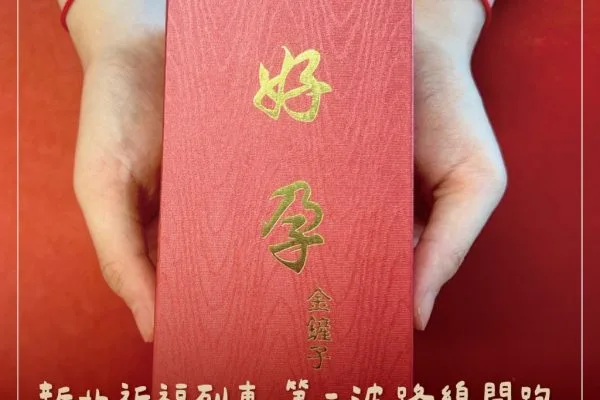 好孕
金鏟子
新北祈福列車 第二波路線開跑